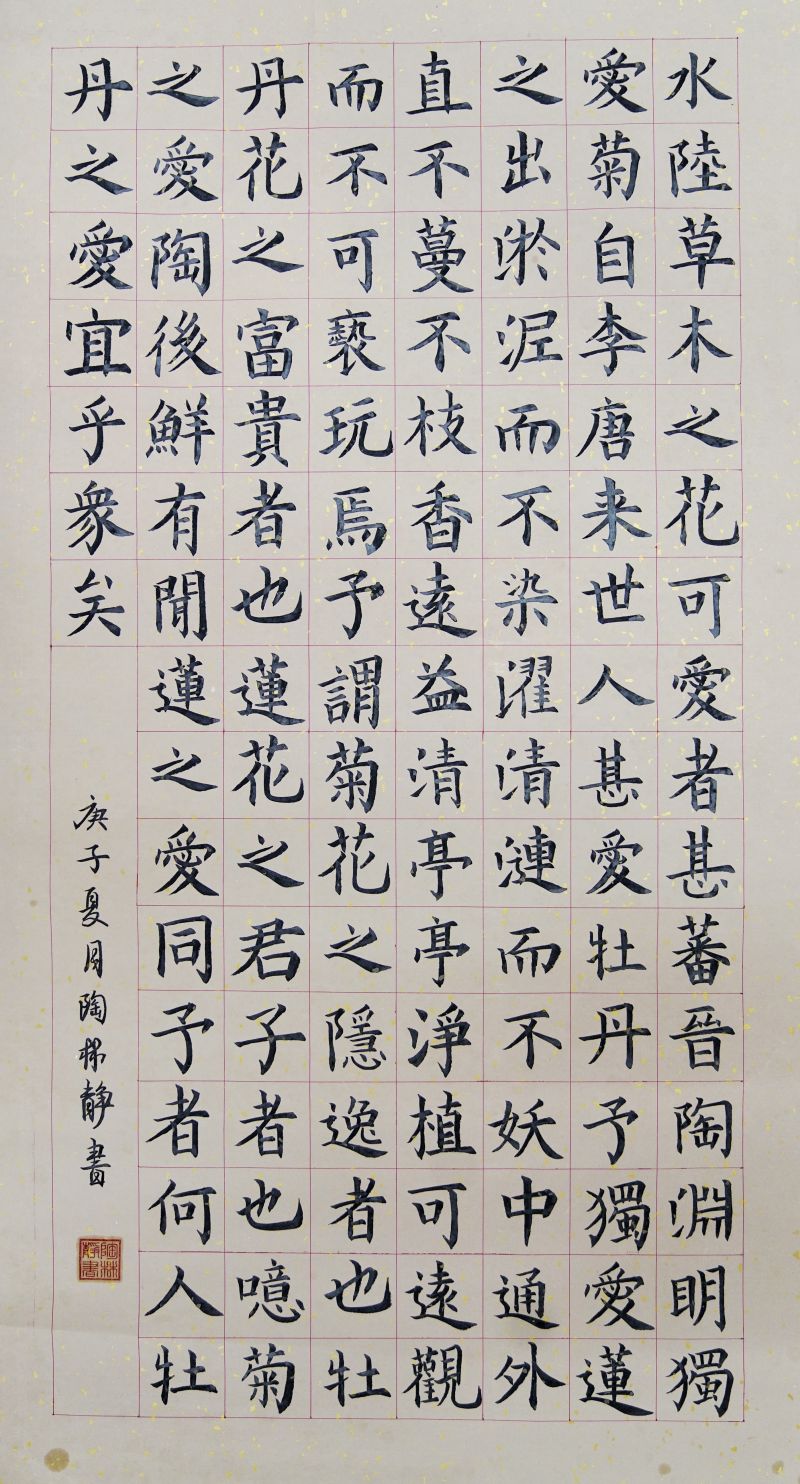 水陸草木之花可愛者甚蕃晉陶淵明獨
愛菊自李唐来世人甚愛牡丹予獨愛蓮
之出淤泥而不染濯清漣而不妖中通外
直不蔓不枝香遠益清亭亭淨植可遠觀
而不可褻玩焉予謂菊花之隱逸者也牡
丹花之富貴者也蓮花之君子者也噫菊
之愛陶後鮮有聞蓮之愛同予者何人牡
丹之愛宜乎衆矣
庚子夏月陶静書